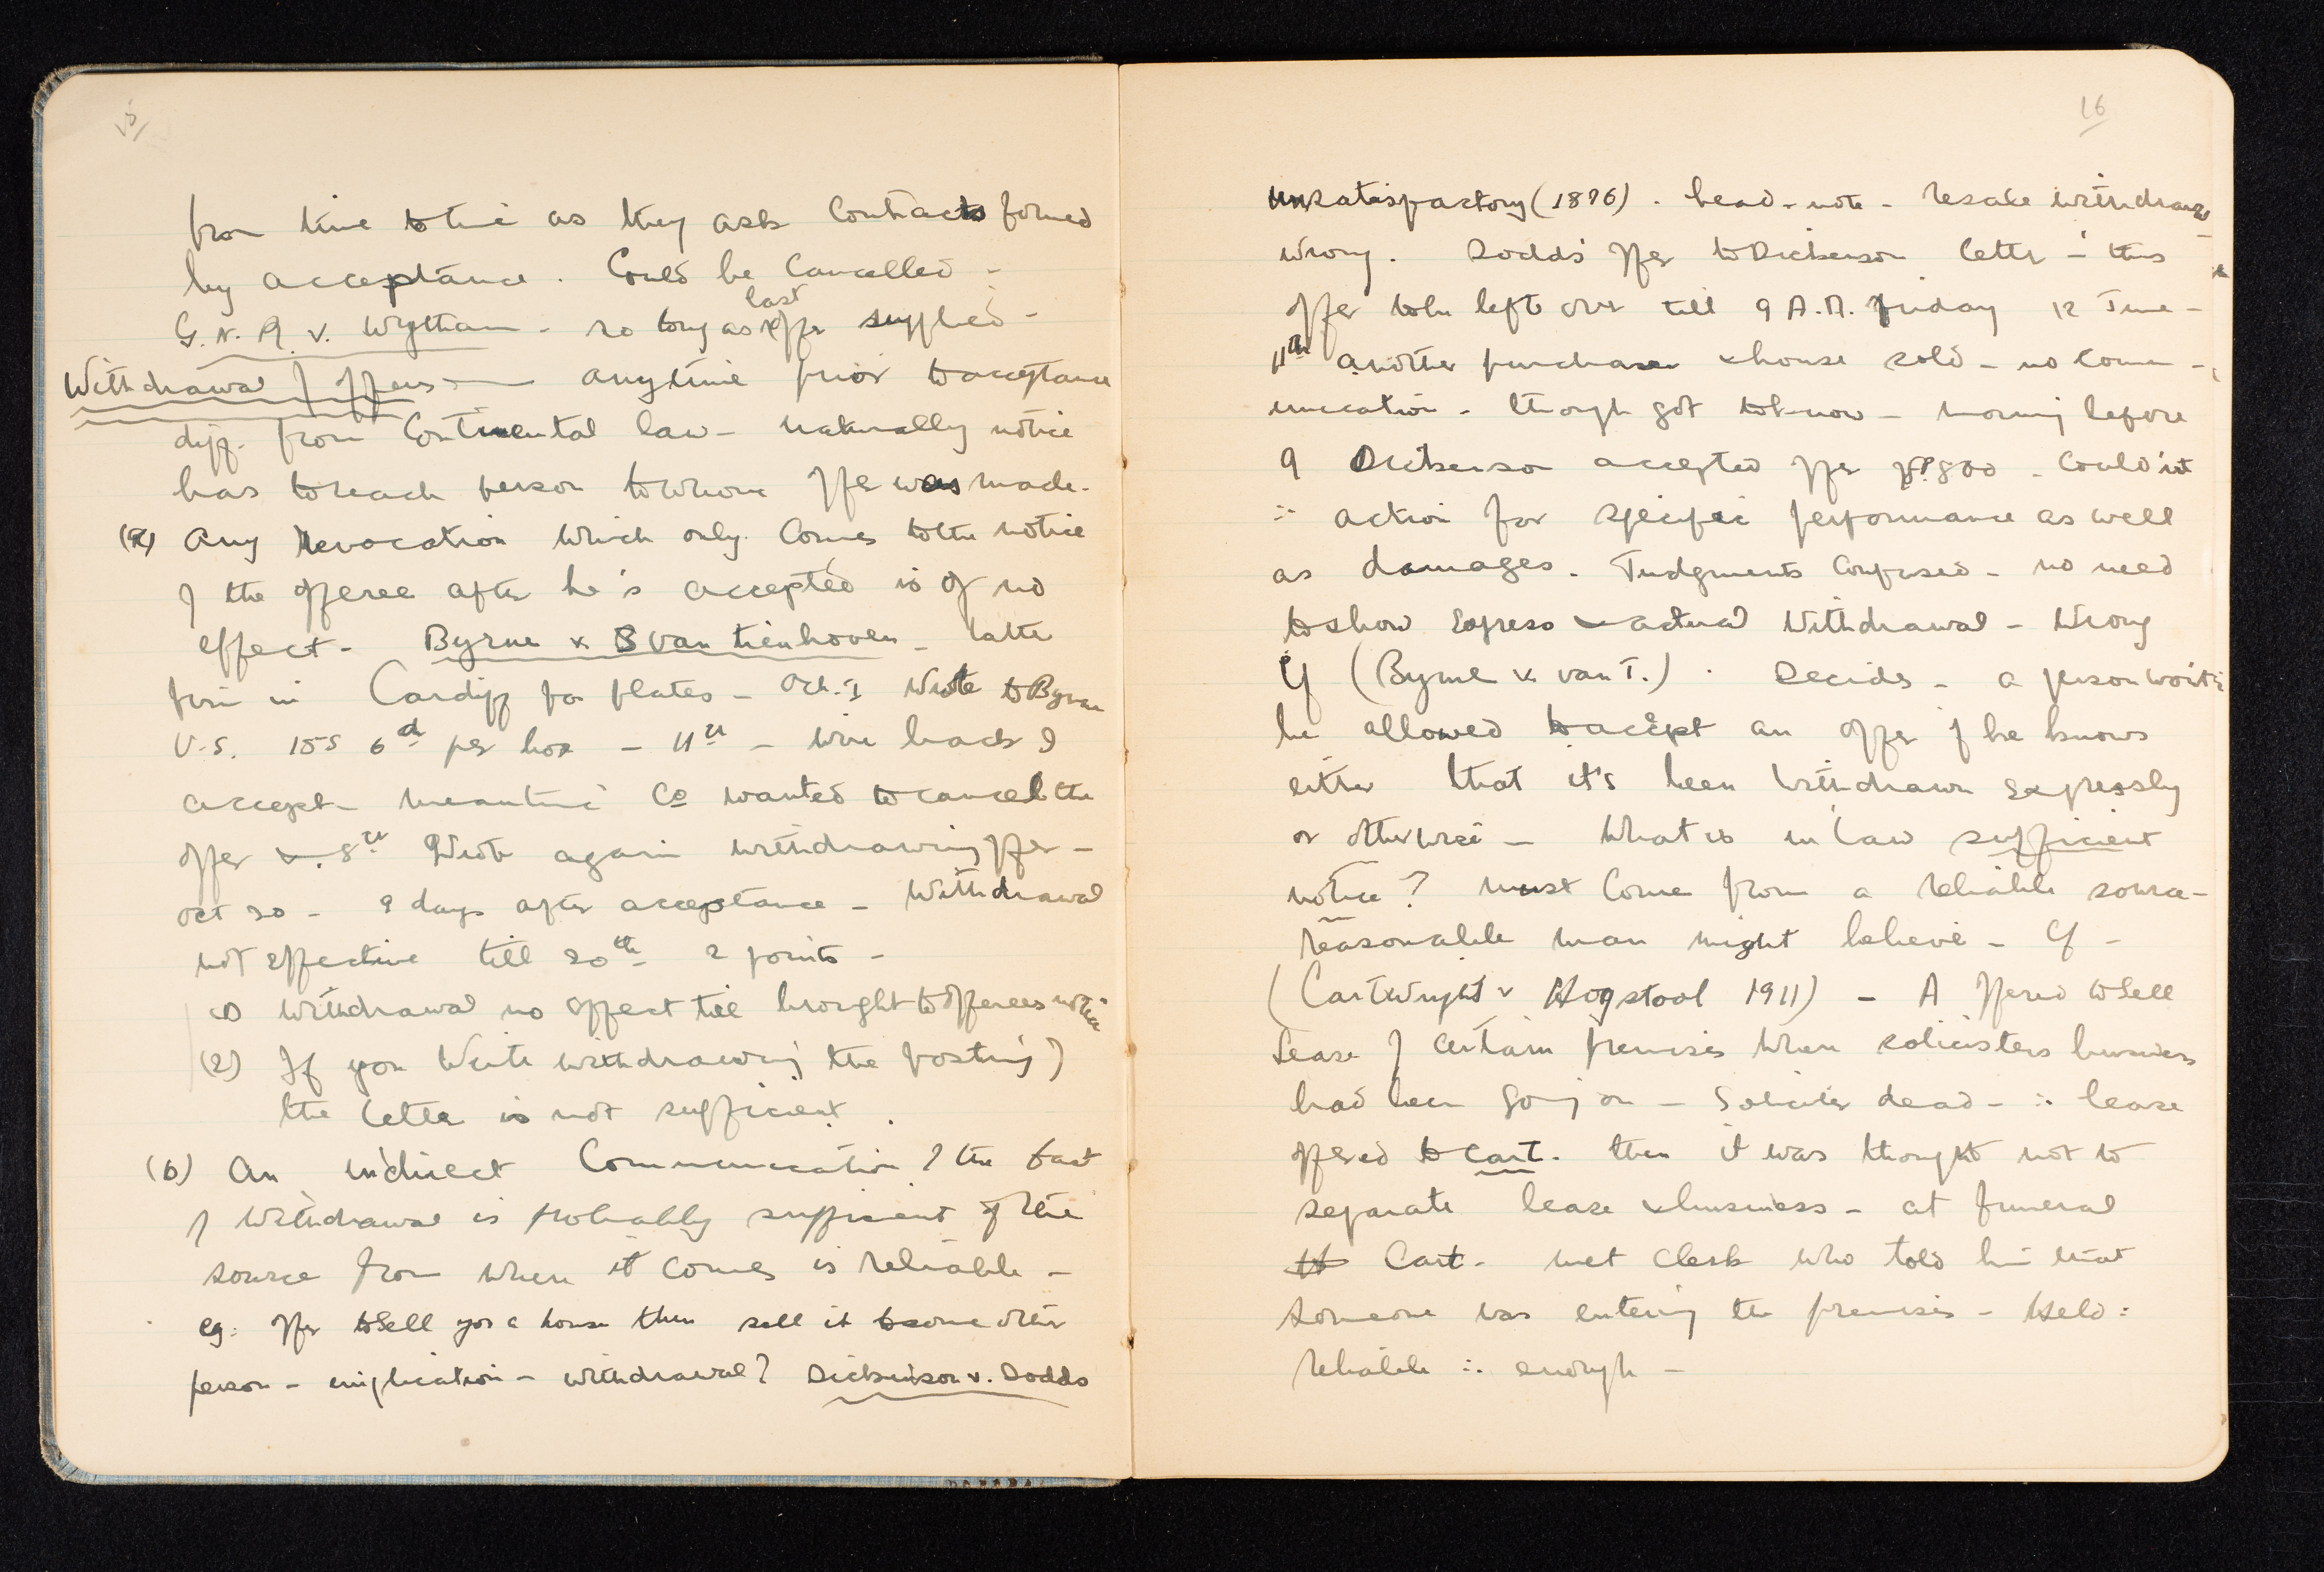 15
from time to time as they ask Contracts formed
by acceptance. Could be Cancelled -
last
G.N.R. v. Wytham - so long as offer supplied -
Withdrawal of offers - anytime prior to acceptance
diff. from Continental law - naturally notice
has to reach person to whom offer was made.
(a) Any Revocation which only Comes to the notice
of the offeree after he's accepted is of no
effect - Byrne v. Van Tienhoven - latter
firm in Cardiff for plates - Oct. 1 Wrote to Byrne
U.S. 15s 6d per box - 11th - wire back I
accept - meantime Co wanted to cancel the
offer & 8th Wrote again withdrawing offer -
Oct 20 - 9 days after acceptance - Withdrawal
not effective till 20th - 2 points -
(1) Withdrawal no effect till brought to offerees notice
(2) If you Write withdrawing the posting of
the letter is not sufficient.
(b) An indirect Communication of the fact
of Withdrawal is probably sufficient if the
source from where it comes is reliable -
eg: offer to Sell you a house then sell it to some other
person - implication - withdrawal? Dickinson v. Dodds
16
unsatisfactory (1876). head-note - resale withdrawal
wrong. Dodds' offer to Dickenson letter - this
offer to be left over till 9 A.M. Friday 12 June -
11th another purchaser & house sold - no comm -
unication - though got to know - morning before
9 Dickenson accepted offer of £800 - Could n't
∴ action for specific performance as well
as damages. Judgments Confused - no need
to show express & actual Withdrawal - Wrong
Cf (Byrne v. van T.). Decides - a person won't
be allowed to accept an offer if he knows
either that it's been Withdrawn expressly
or otherwise - What is in law sufficient
notice? must Come from a reliable source -
reasonable man might believe - Cf -
(Cartwright v Hoogstoel 1911) - A offered to Sell
Lease of certain premises where solicitors business
had been going on - Solicitor dead - ∴ lease
offered to Cart. then it was thought not to
separate lease & business - at funeral
Cart. met clerk who told him that
someone was entering the premises - Held:
reliable ∴ enough -